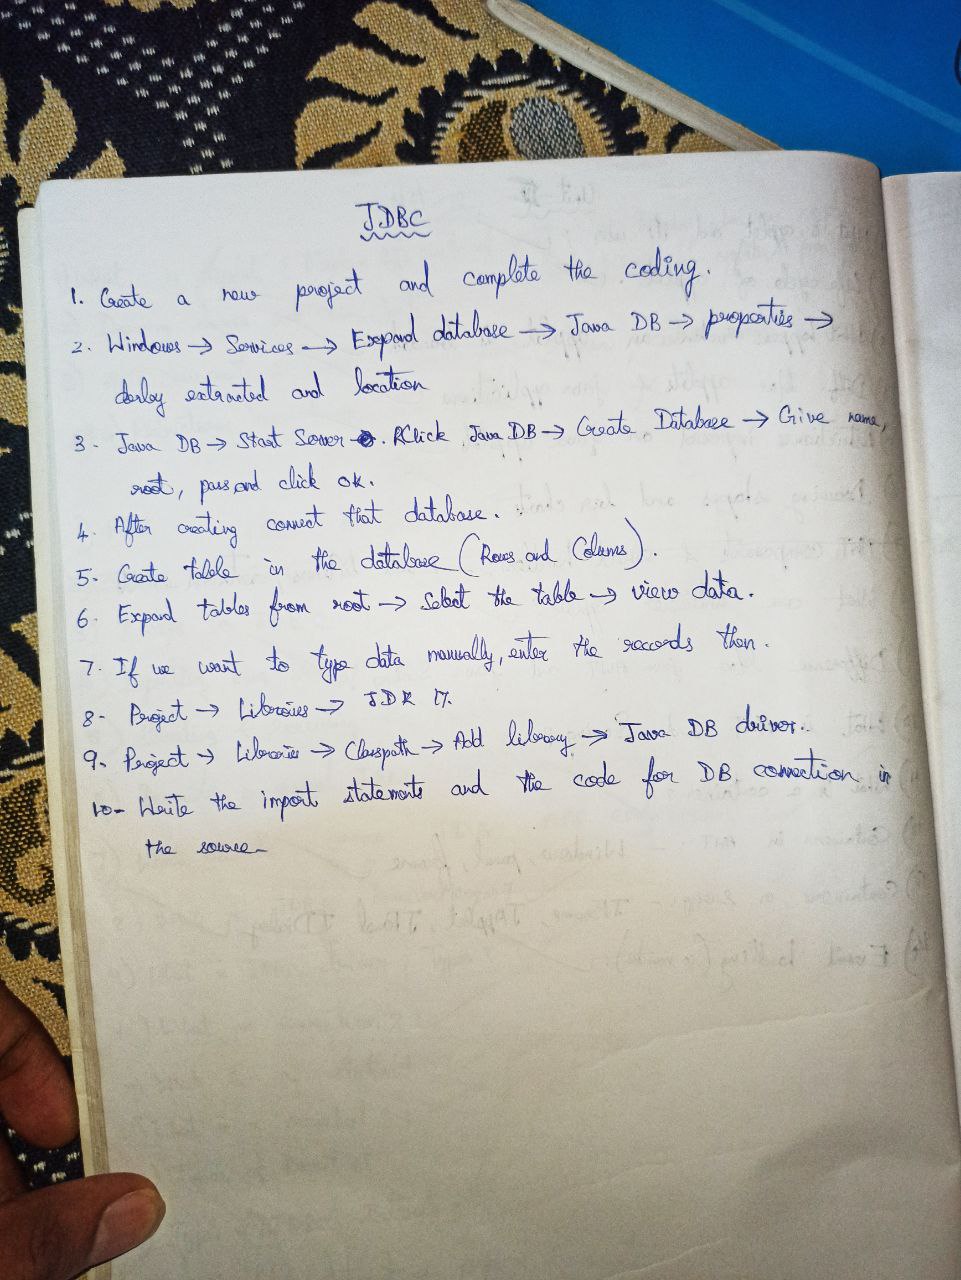 JDBC
1. Create a new project and complete the coding.
2. Windows → Services → Expand database → Java DB → properties →
derby extracted and location
3. Java DB → Start Server. RClick Java DB → Create Database → Give name,
root, pass and click ok.
4. After creating connect that database.
5. Create table in the database (Rows and Colums).
6. Expand tables from root → Select the table → view data.
7. If we want to type data manually, enter the records then.
8. Project → Libraries → JDK 17.
9. Project → Libraries → Classpath → Add library → Java DB driver.
10. Write the import statements and the code for DB connection in
the source